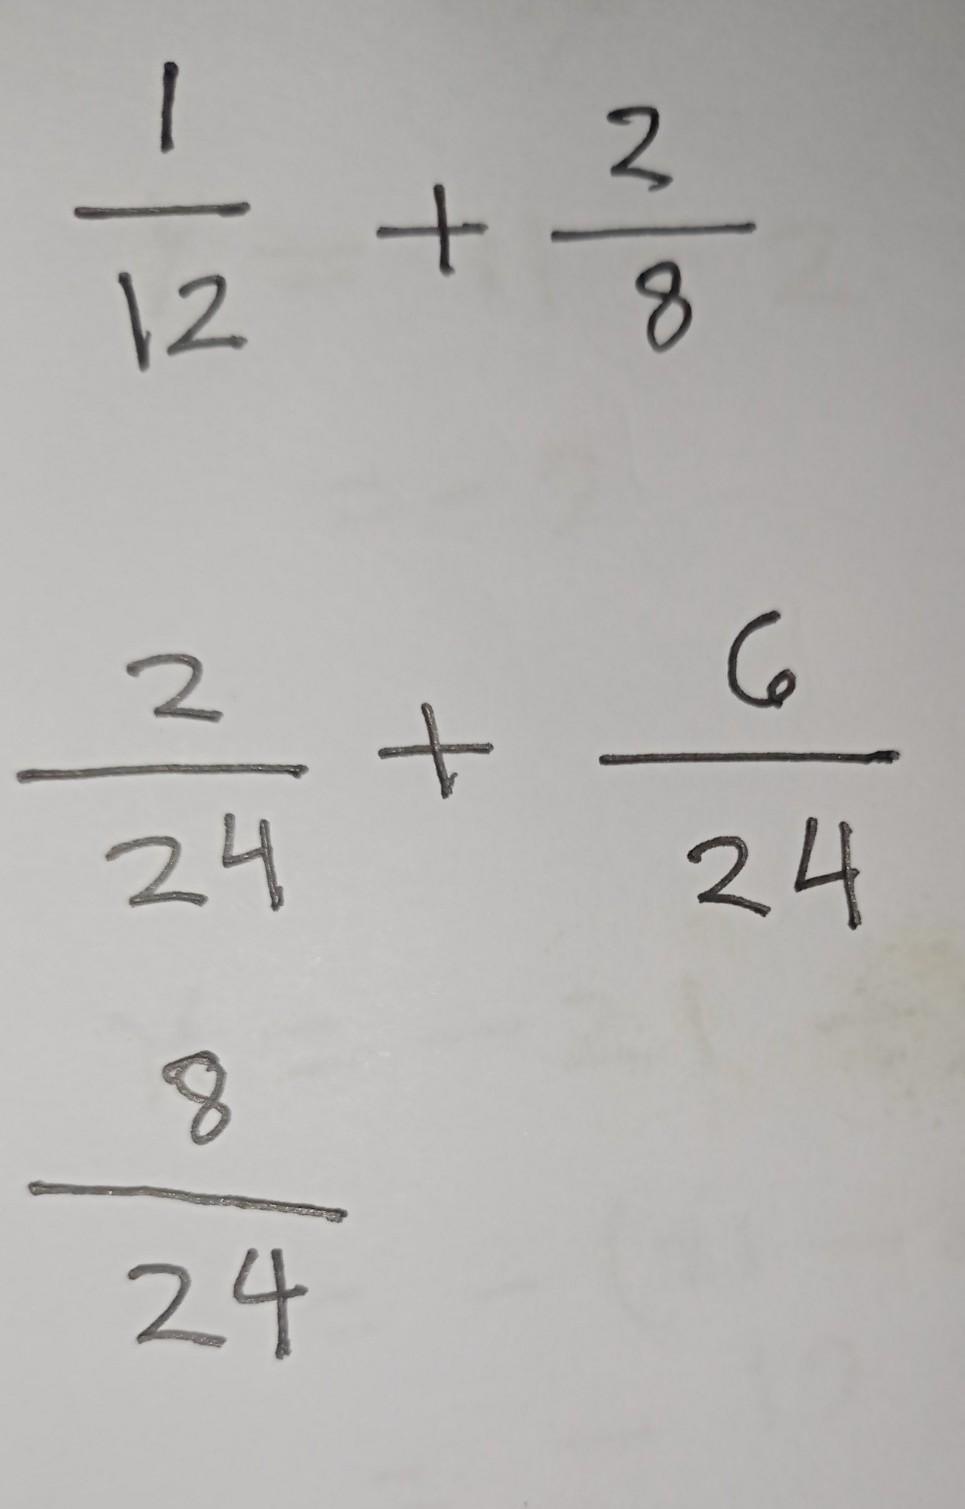 1/12 + 2/8
2/24 + 6/24
8/24